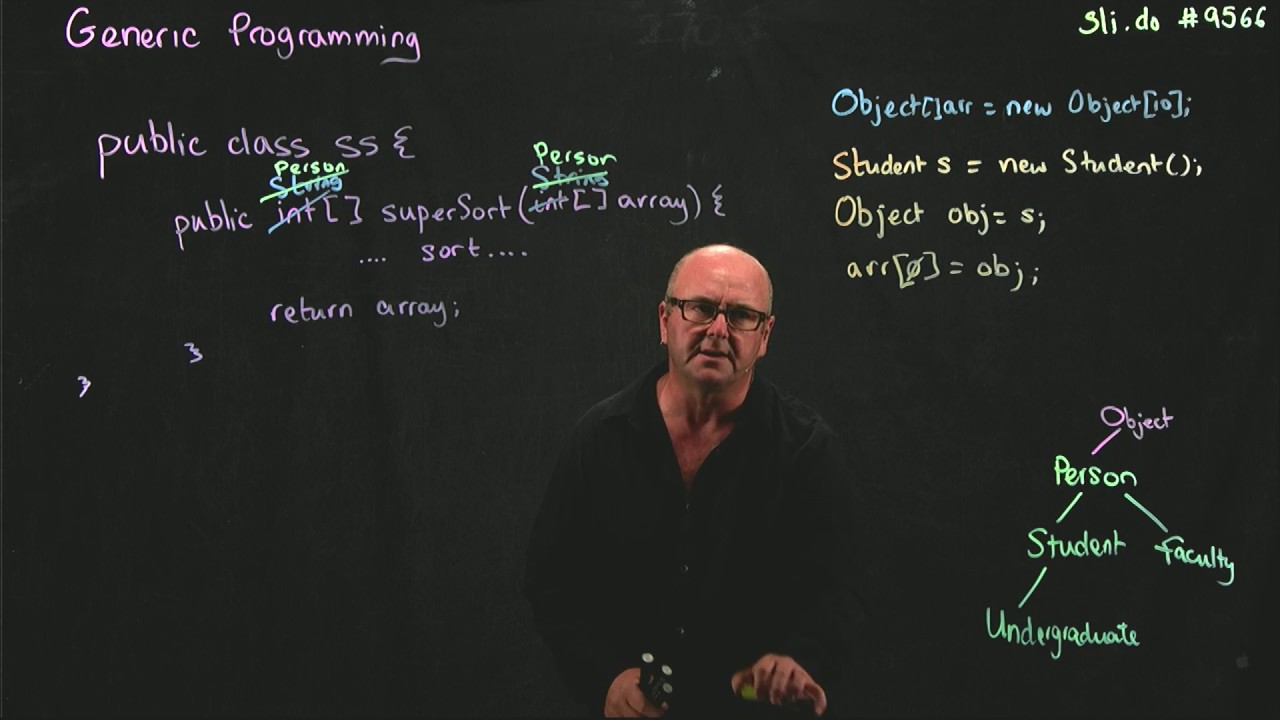 Generic Programming
sli.do #9566
public class ss {
Person Person
String String
public int[] superSort(int[] array) {
.... sort....
return array;
}
}
Object[]arr = new Object[10];
Student s = new Student();
Object obj = s;
arr[0] = obj;
Object
Person
Student Faculty
Undergraduate